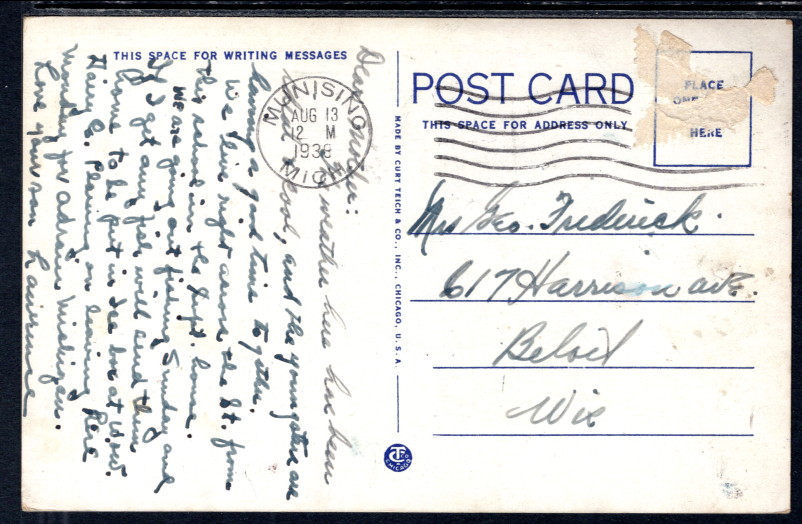 THIS SPACE FOR WRITING MESSAGES
Dear Mother:
The weather here has been
and cool, and the youngsters are
having a good time together.
We live right across the St. from
this school in the Supt. home.
We are going out fishing Sunday and
if I get any fish will send them
home to be put in ice box at Wow
Dairy Co. Planing on leaving here
Monday for Adrain Michigan.
Love your son Lawrence
MUNISING
AUG 13
12 M
1938
MICH.
POST CARD
THIS SPACE FOR ADDRESS ONLY
PLACE
ONE
HERE
Mrs Geo. Frederick.
617 Harrison ave.
Beloit
Wis
MADE BY CURT TEICH & CO., INC., CHICAGO, U.S.A.
CT
CHICAGO